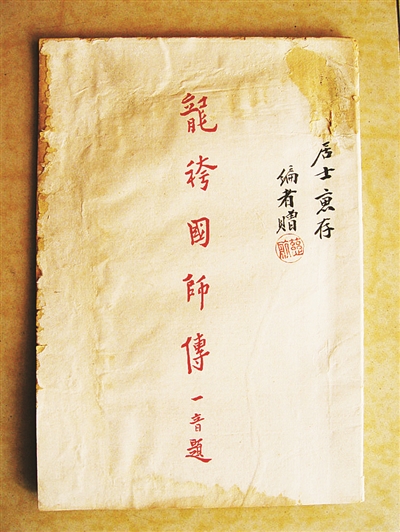 居士惠存
編者贈
龍袴國師傳
一音題